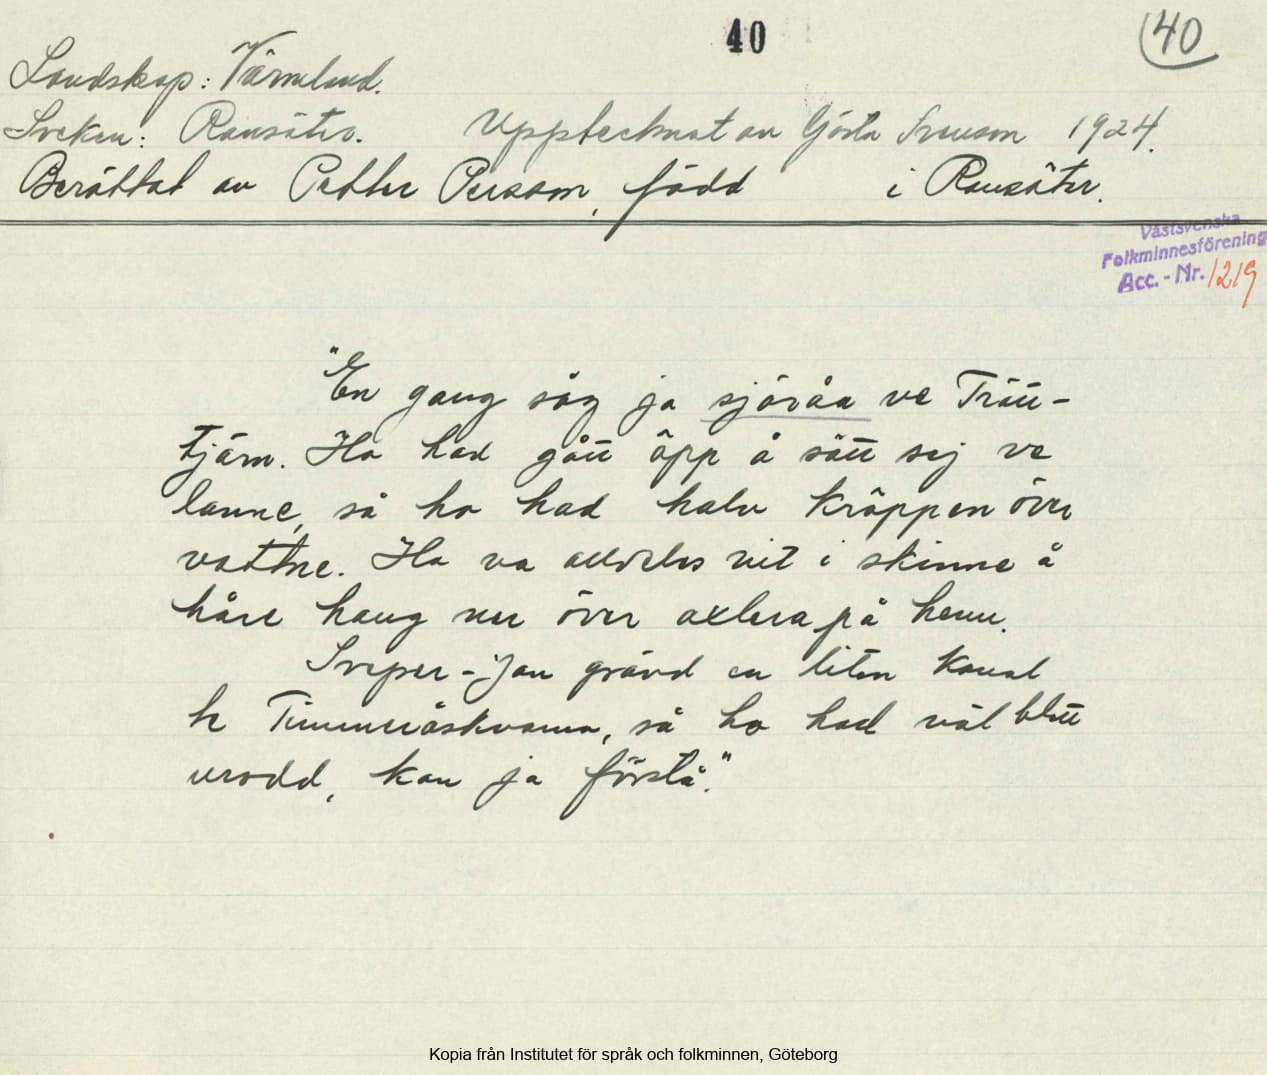 40
40
Landskap: Värmland.
Socken: Ransäter. Upptecknat av Gösta Svenson 1924.
Berättat av Petter Persson, född i Ransäter.
Västsvenska
Folkminnesförening
Acc.-Nr. 1219
"En gang såg ja sjöråa ve Trätt-
tjärn. Ho had gått öpp å sätt sej ve
lanne, så ho had halv kröppen över
vattne. Ho va alldeles vit i skinne å
håre hang ner över axlera på henn.
Sveper-Jan grävd en liten kanal
te Timmeråskvarna, så ho had väl blitt
urodd, kan ja förstå."
Kopia från Institutet för språk och folkminnen, Göteborg